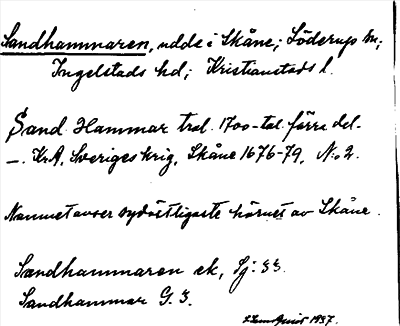 Sandhammaren, udde i Skåne; Löderups sn;
Ingelstads hd; Kristianstads l.
Sand Hammar trol. 1700-tal. förra del.
—. KrA, Sveriges krig, Skåne 1676-79, N:o 2.
Namnet avser sydöstligaste hörnet av Skåne.
Sandhammaren ek, Sj: 33.
Sandhammar G. 3.
1937.